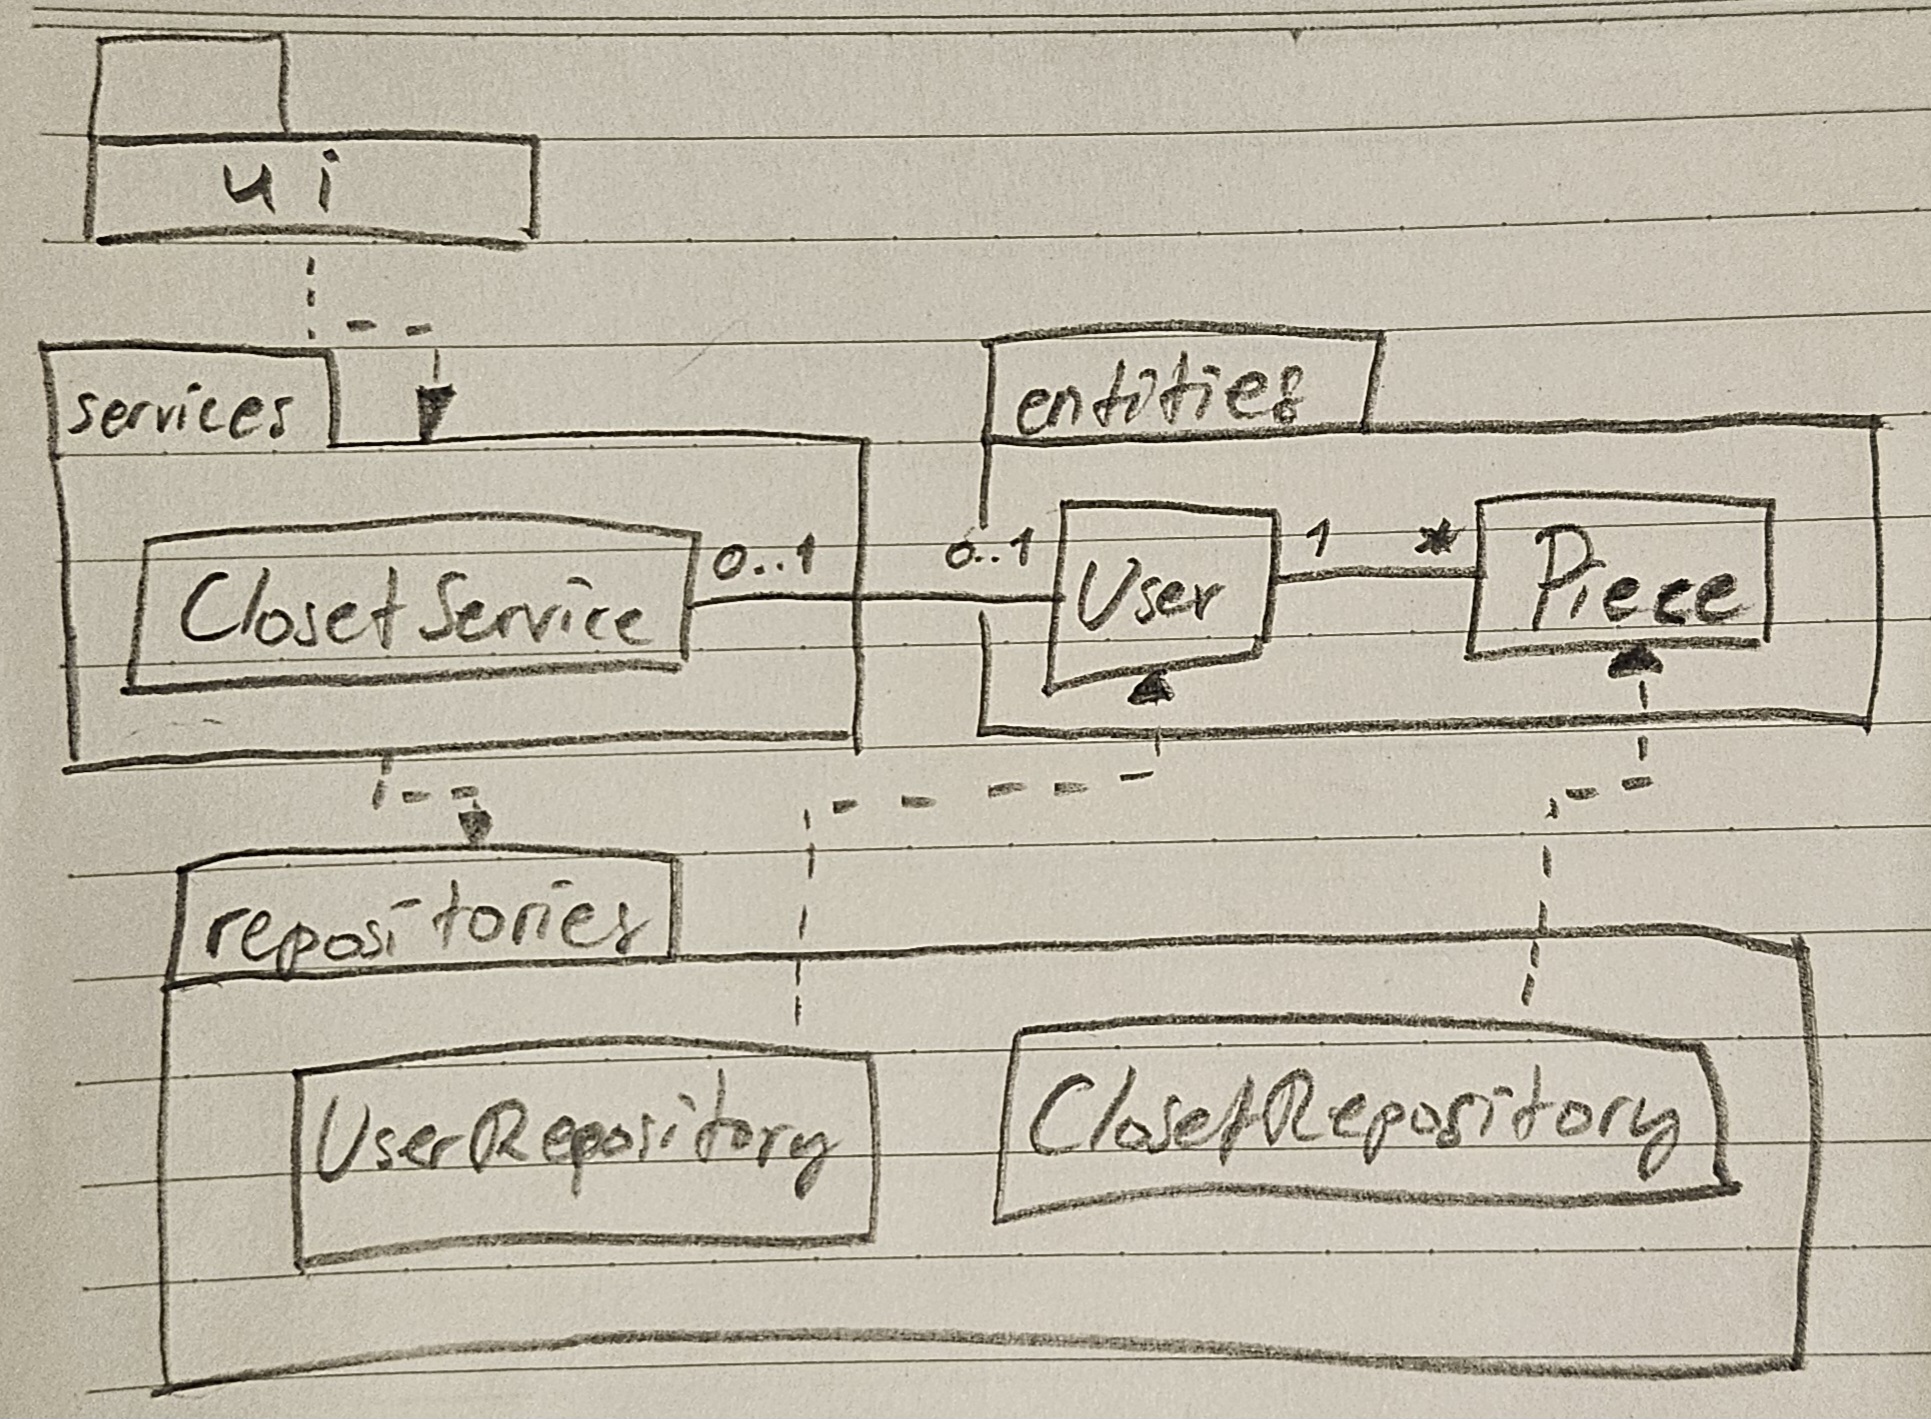 ui
services
entities
ClosetService
0..1
0..1
User
1
*
Piece
repositories
UserRepository
ClosetRepository